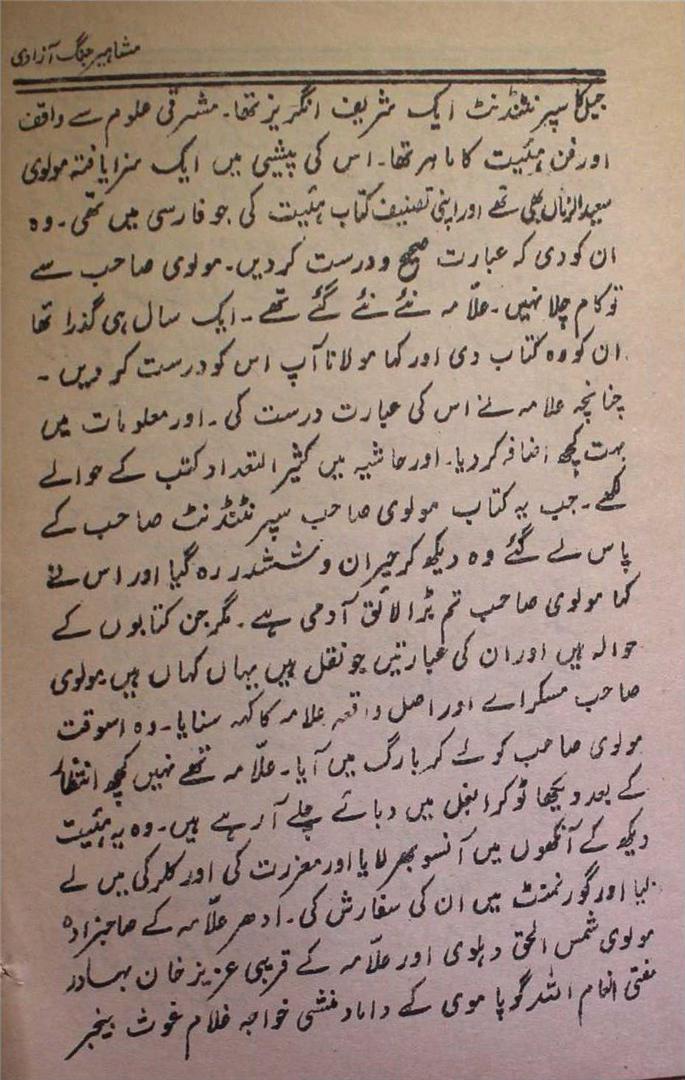 مشاہیر جنگ آزادی
جیل کا سپرنٹنڈنٹ ایک شریف انگریز تھا۔ مشرقی علوم سے واقف
اور فن ہئیت کا ماہر تھا۔ اس کی پیشی میں ایک سزا یافتہ مولوی
بھی تھے اور اپنی تصنیف کتاب ہئیت کی جو فارسی میں تھی۔ وہ
ان کو دی کہ عبارت صحیح و درست کر دیں۔ مولوی صاحب سے
تو کام چلا نہیں۔ علّامہ نئے نئے گئے تھے۔ ایک سال ہی گذرا تھا
ان کو وہ کتاب دی اور کہا مولانا آپ اس کو درست کر دیں۔
چنانچہ علامہ نے اس کی عبارت درست کی۔ اور معلومات میں
بہت کچھ اضافہ کر دیا۔ اور حاشیہ میں کثیر التعداد کتب کے حوالے
لکھے۔ جب یہ کتاب مولوی صاحب سپرنٹنڈنٹ صاحب کے
پاس لے گئے وہ دیکھ کر حیران و ششدر رہ گیا اور اس نے
کہا مولوی صاحب تم بڑا لائق آدمی ہے۔ مگر جن کتابوں کے
حوالہ ہیں اور ان کی عبارتیں جو نقل ہیں یہاں کہاں ہیں مولوی
صاحب مسکراے اور اصل واقعہ علامہ کا کہہ سنایا۔ وہ اسوقت
مولوی صاحب کو لے کر بارگ میں آیا۔ علّامہ تھے نہیں کچھ انتظار
کے بعد دیکھا ٹوکرا بغل میں دبائے چلے آ رہے ہیں۔ وہ یہ ہئیت
دیکھ کے آنکھوں میں آنسو بھر لایا اور معزرت کی اور کلرکی میں لے
لیا اور گورنمنٹ میں ان کی سفارش کی۔ ادھر علّامہ کے صاحبزادہ
مولوی شمس الحق دہلوی اور علّامہ کے قریبی عزیز خان بہادر
مفتی انعام اللہ گوپاموی کے داماد منشی خواجہ غلام غوث بیخبر